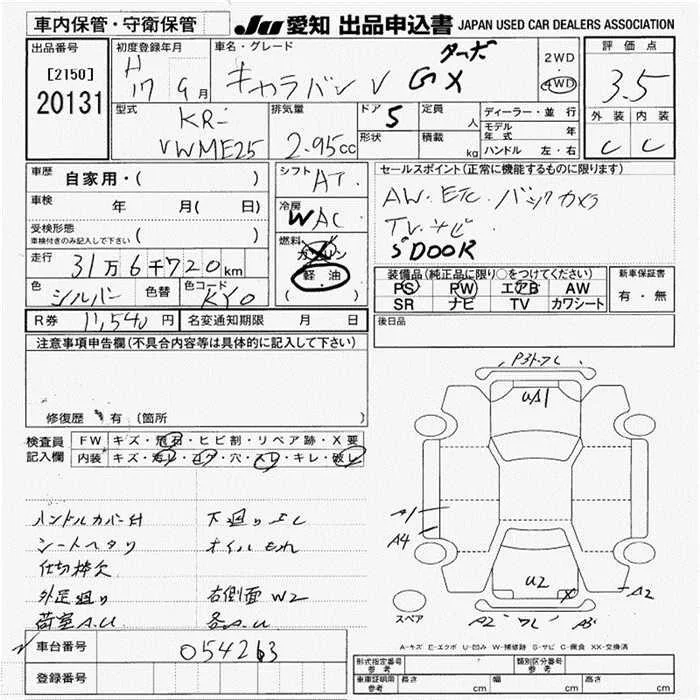 車内保管・守衛保管
JU 愛知 出品申込書 JAPAN USED CAR DEALERS ASSOCIATION
出品番号
[2150]
20131
初度登録年月
H 17 9月
車名・グレード
キャラバン V GX ターボ
2WD
4WD
評価点
3.5
外装 内装
C C
型式
KR-
VWME25
排気量
2.95cc
ドア 5
形状
定員 人
積載 kg
ディーラー・並行
モデル年式 年
ハンドル 左・右
車歴 自家用・( )
車検 年 月(日)
受検形態
車検付きのみ記入して下さい ( )
走行 31万6千720km
色 シルバー 色替 色コード KY0
シフト AT
冷房 WAC
燃料
ガソリン
軽・油
( )
セールスポイント(正常に機能するものに限ります)
AW. ETC. バックカメラ
TV.ナビ.
5DOOR
装備品(純正品に限り○をつけてください)
PS PW エアB AW
SR ナビ TV カワシート
新車保証書
有・無
R券 11,540円 名変通知期限 月 日
後日品
注意事項申告欄(不具合内容等は具体的に記入して下さい)
修復歴 有(箇所 )
検査員記入欄
FW キズ・飛石・ヒビ割・リペア跡・X要
内装 キズ・汚レ・コゲ・穴・スレ・キレ・破レ
ハンドルカバー付 下廻りサビ
シートヘタリ オイルもれ
仕切枠欠
外足廻り 右側面W2
荷室A.U 各A.U
車台番号 054263
登録番号
U A1
A1
A4
U2
X
A2
A2
スペア
A-キズ E-エクボ U-凹み W-補修跡 S-サビ C-腐食 XX-交換済
形式指定番号 参考
類別区分番号 参考
車庫証明用 参考
長さ cm 幅 cm 高さ cm